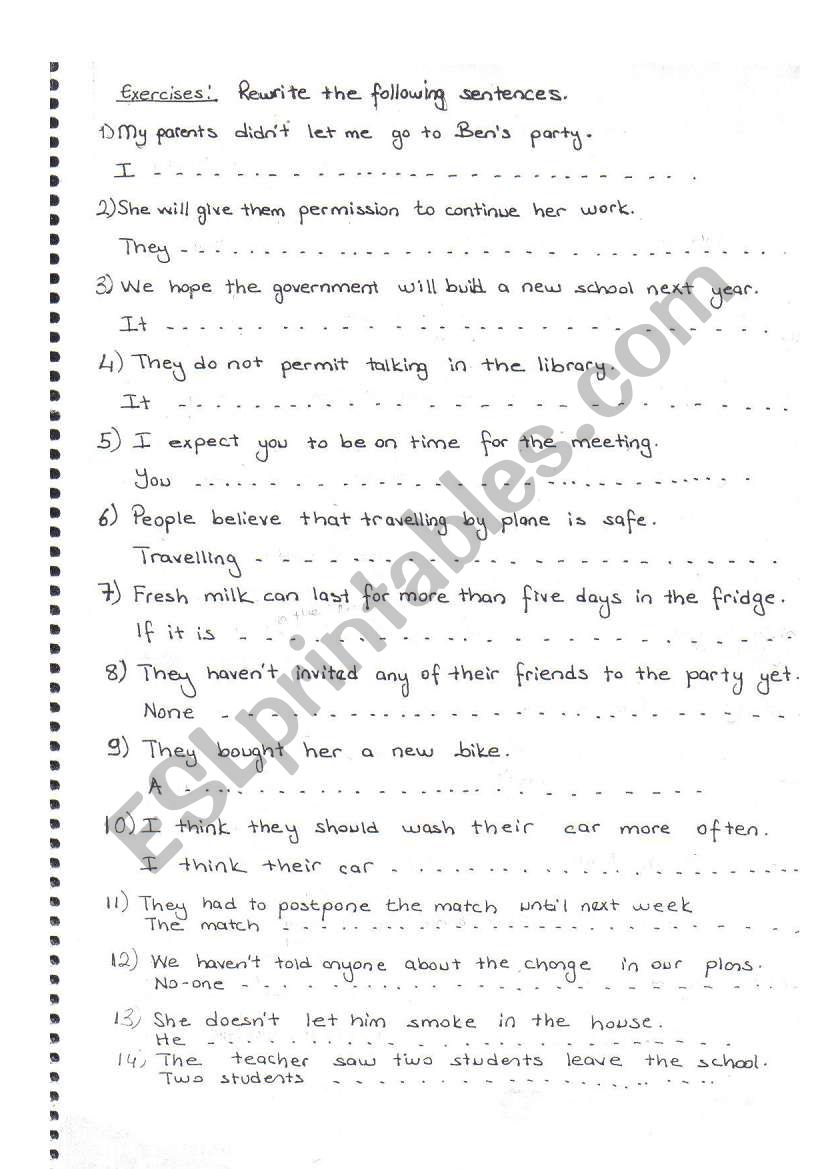 Exercises: Rewrite the following sentences.
1) My parents didn't let me go to Ben's party.
I - - - - - - - - - - - - - - - - - - - - - - - - - - -
2) She will give them permission to continue her work.
They - - - - - - - - - - - - - - - - - - - - - - - - - - -
3) We hope the government will build a new school next year.
It - - - - - - - - - - - - - - - - - - - - - - - - - - -
4) They do not permit talking in the library.
It - - - - - - - - - - - - - - - - - - - - - - - - - - -
5) I expect you to be on time for the meeting.
You - - - - - - - - - - - - - - - - - - - - - - - - - - -
6) People believe that travelling by plane is safe.
Travelling - - - - - - - - - - - - - - - - - - - - - - - -
7) Fresh milk can last for more than five days in the fridge.
If it is - - - - - - - - - - - - - - - - - - - - - - - - -
8) They haven't invited any of their friends to the party yet.
None - - - - - - - - - - - - - - - - - - - - - - - - - - -
9) They bought her a new bike.
A - - - - - - - - - - - - - - - - - - - - - - - - - - -
10) I think they should wash their car more often.
I think their car - - - - - - - - - - - - - - - - - - - -
11) They had to postpone the match until next week
The match - - - - - - - - - - - - - - - - - - - - - - - -
12) We haven't told anyone about the change in our plans.
No-one - - - - - - - - - - - - - - - - - - - - - - - - - -
13) She doesn't let him smoke in the house.
He - - - - - - - - - - - - - - - - - - - - - - - - - - -
14) The teacher saw two students leave the school.
Two students - - - - - - - - - - - - - - - - - - - - - - -
ESLprintables.com